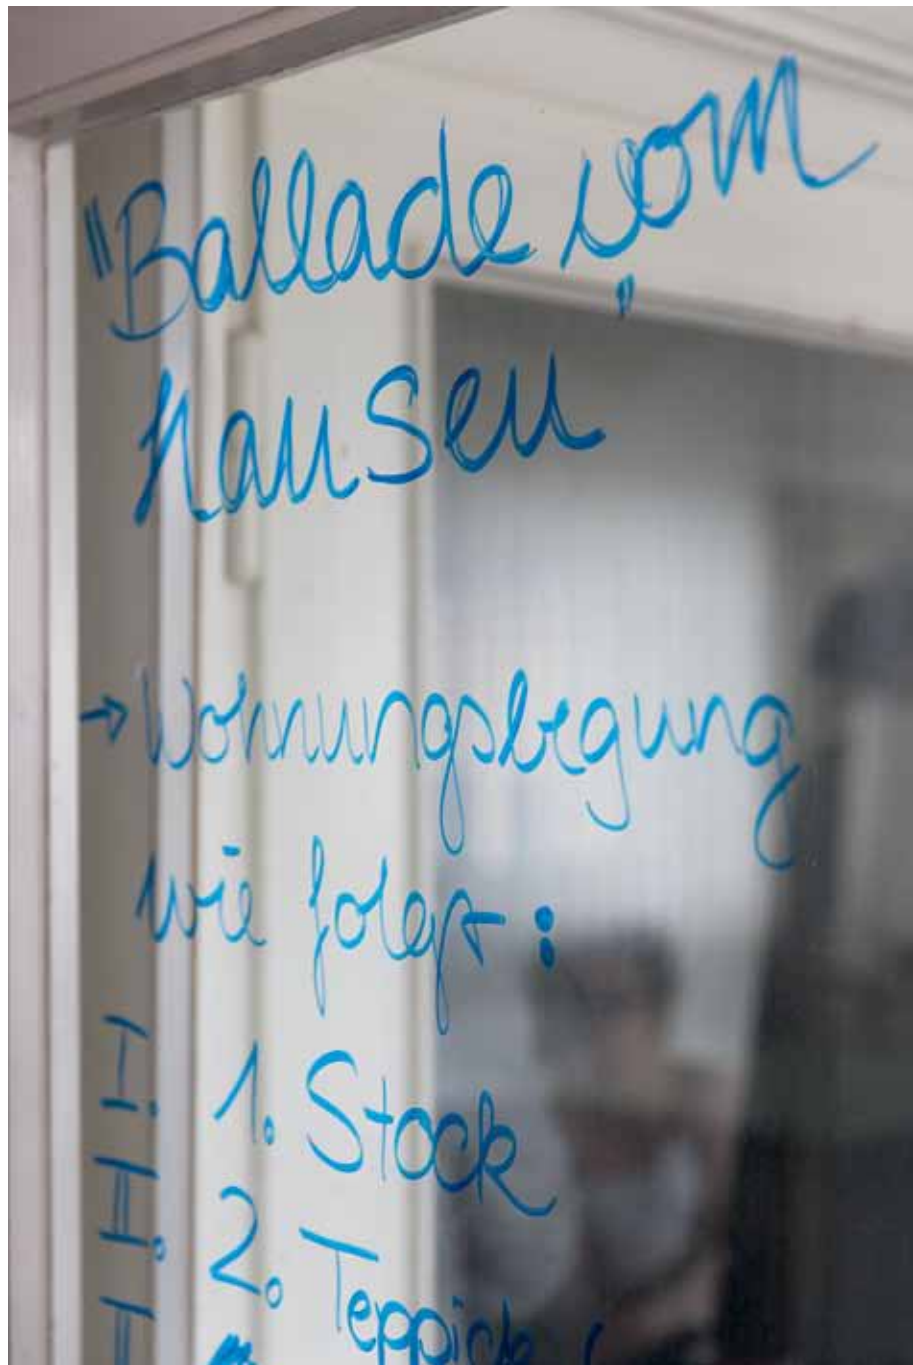 "Ballade vom
hausen"
→ Wohnungsbegung
wie folgt:
I. 1. Stock
II. 2. Teppich (